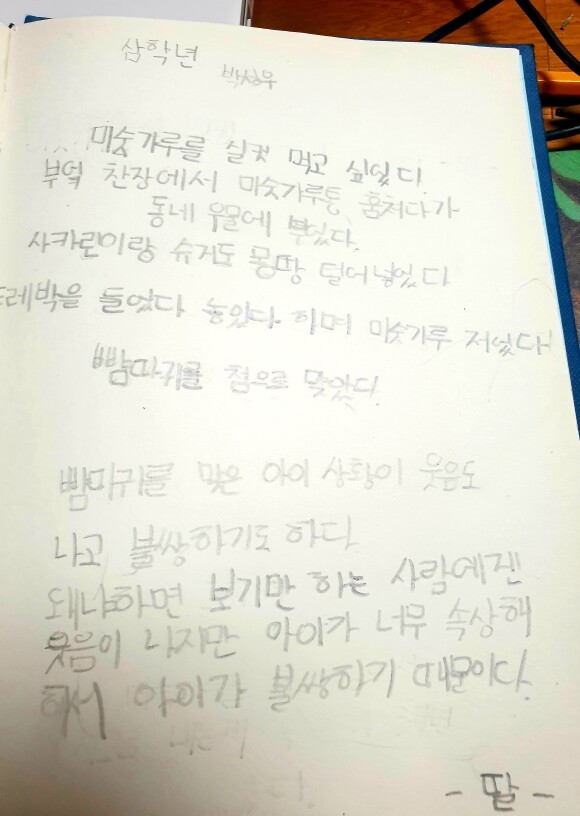 삼학년
박성우
미숫가루를 실컷 먹고 싶었다.
부엌 찬장에서 미숫가루통 훔쳐다가
동네 우물에 부었다.
사카린이랑 슈거도 몽땅 털어넣었다
두레박을 들었다 놓았다 하며 미숫가루 저었다
뺨따귀를 첨으로 맞았다.
뺨따귀를 맞은 아이 상황이 웃음도
나고 불쌍하기도 하다.
돼냐하면 보기만 하는 사람에겐
웃음이 나지만 아이가 너무 속상해
해서 아이가 불쌍하기 때문이다.
- 딸 -